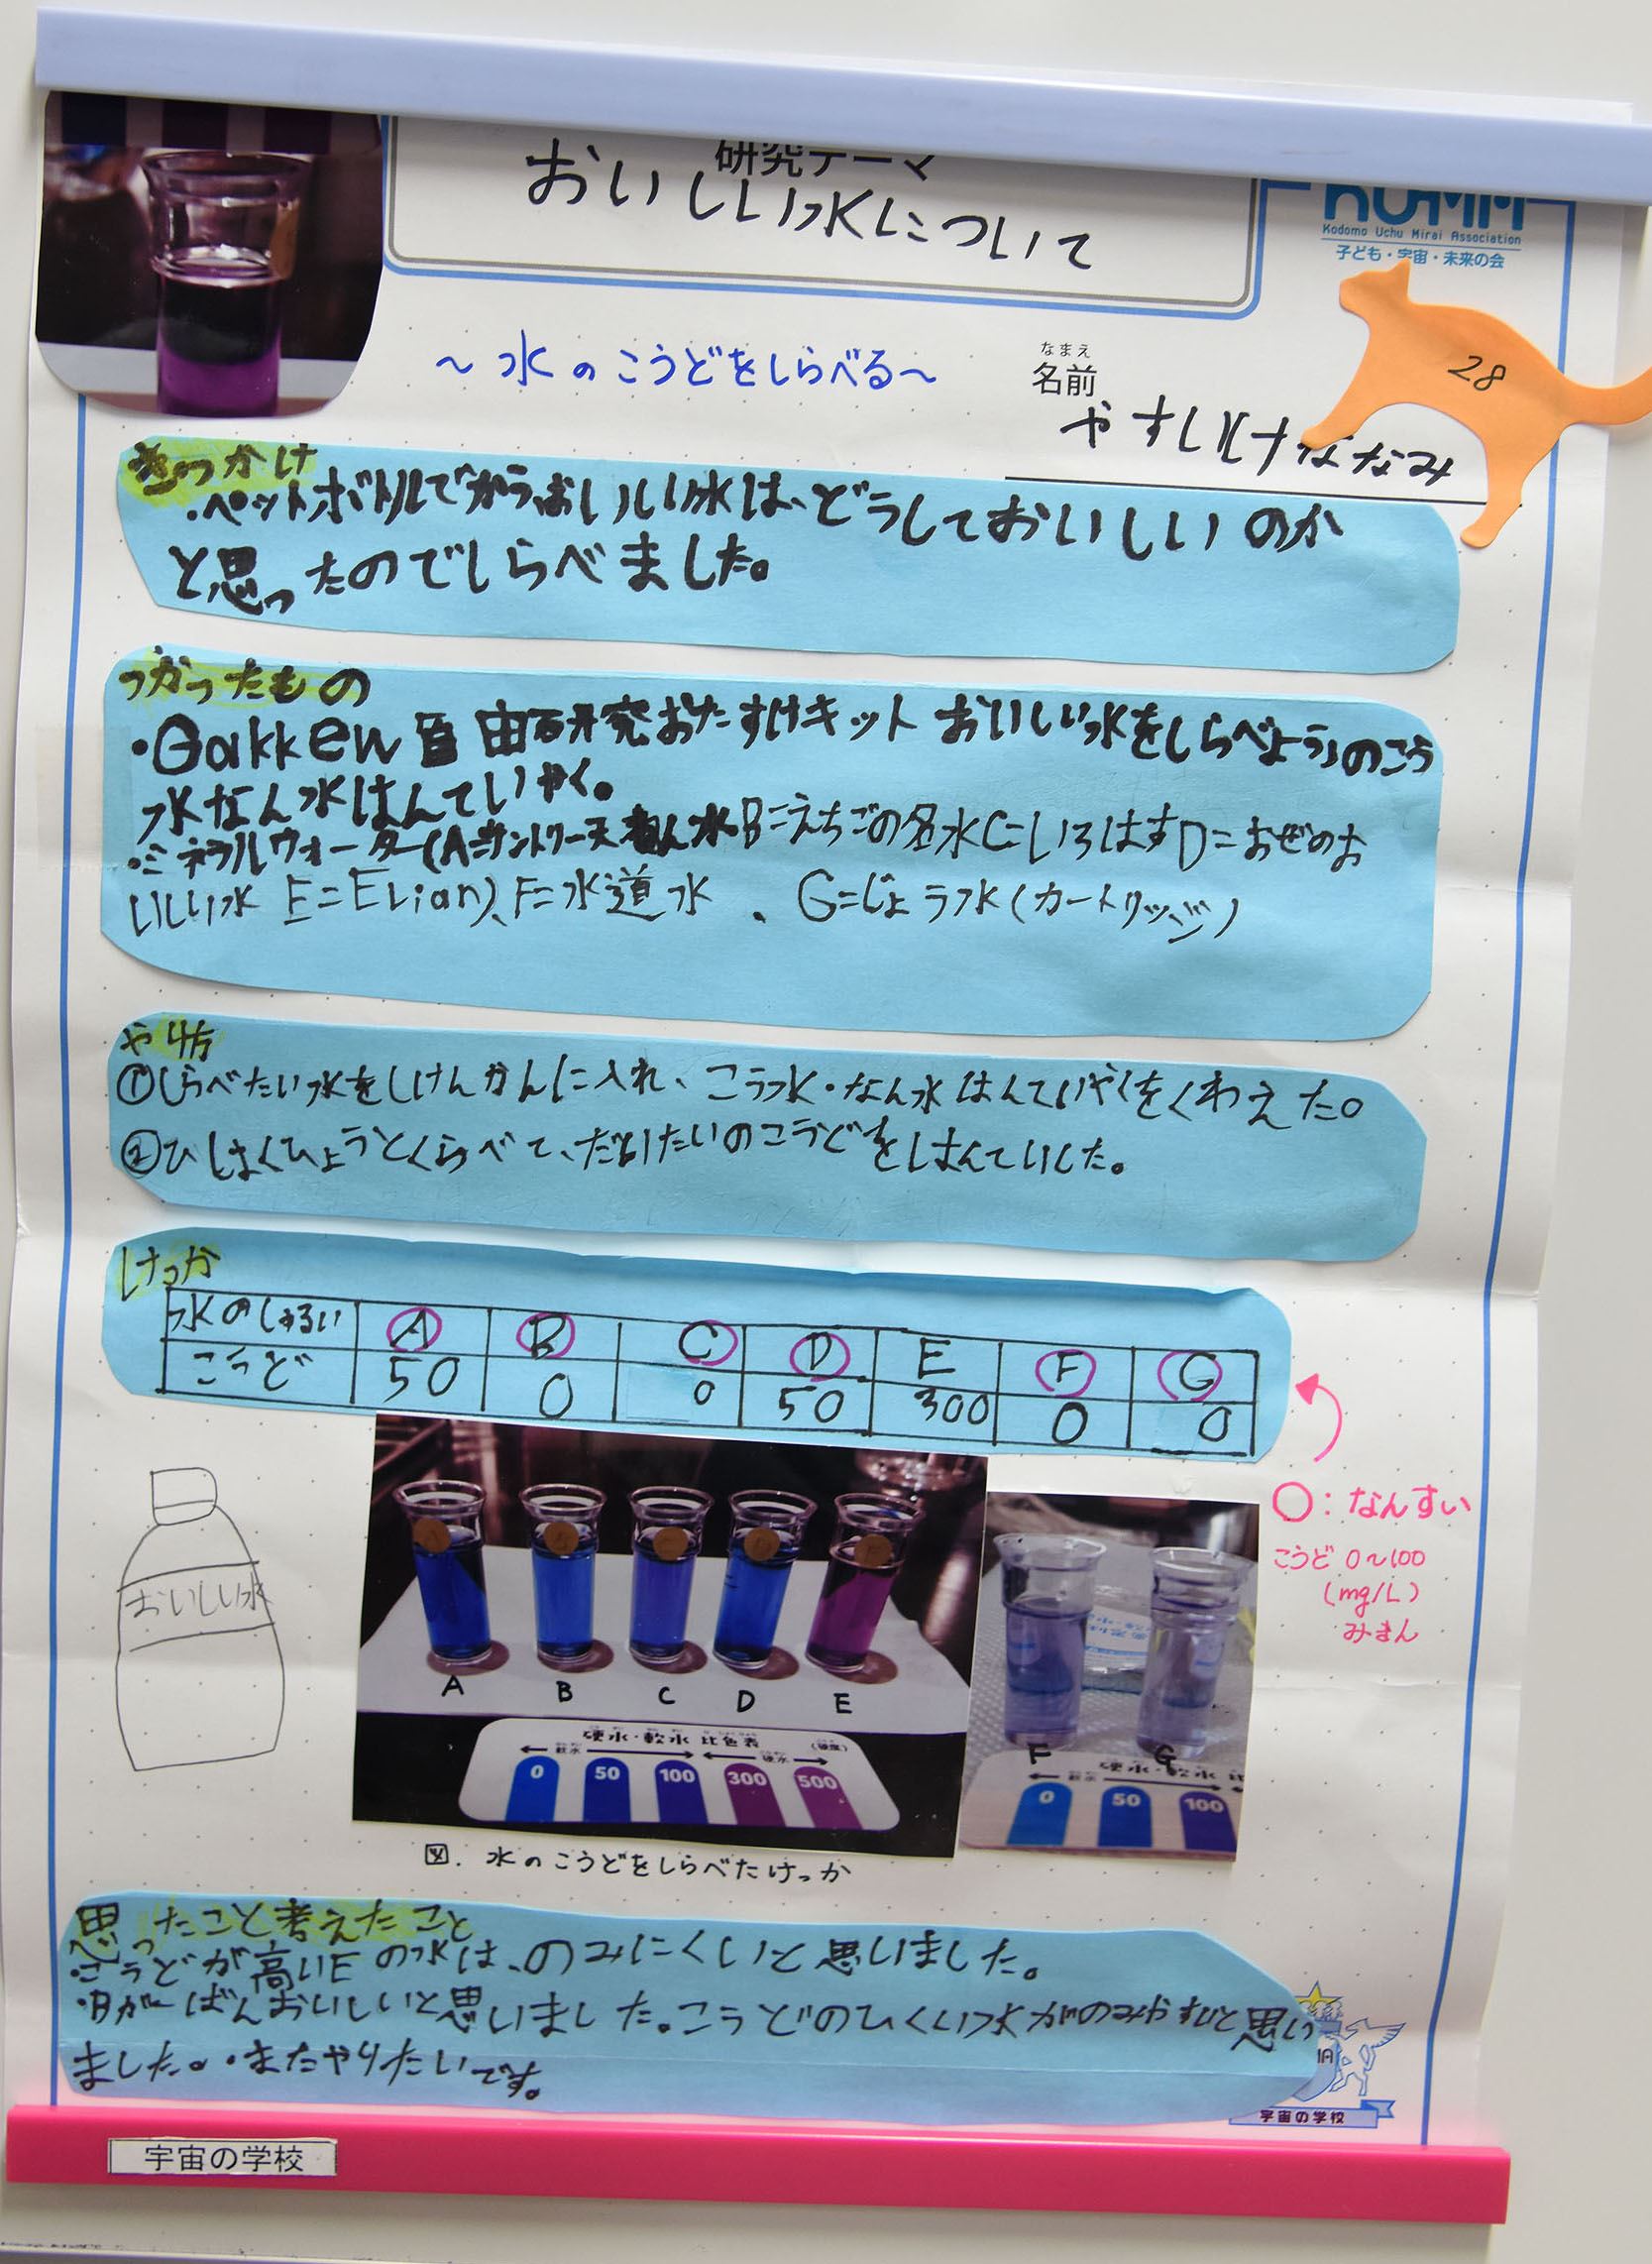 研究テーマ
おいしい水について
KU-MA
Kodomo Uchu Mirai Association
子ども・宇宙・未来の会
28
～水のこうどをしらべる～
なまえ
名前
やすいけななみ
きっかけ
・ペットボトルでかうおいしい水は、どうしておいしいのか
と思ったのでしらべました。
つかったもの
・Gakken自由研究おたすけキット おいしい水をしらべようのこう
水なん水はんていやく。
・ミネラルウォーター(A=サントリー天ねん水B=えちごの名水C=いろはすD=おぜのお
いしい水 E=Elian)、F=水道水 、G=じょう水(カートリッジ)
やり方
①しらべたい水をしけんかんに入れ、こう水・なん水はんていやくをくわえた。
②ひしょくひょうとくらべて、だいたいのこうどをはんていした。
けっか
水のしゅるい A B C D E F G
こうど 50 0 0 50 300 0 0
○：なんすい
こうど 0～100
(mg/L)
みまん
おいしい水
A B C D E
硬水・軟水 比色表 (硬度)
軟水 硬水
0 50 100 300 500
F G
硬水・軟水 比
軟水
0 50 100
図. 水のこうどをしらべたけっか
思ったこと考えたこと
・こうどが高いEの水は、のみにくいと思いました。
・Bが一ばんおいしいと思いました。こうどのひくい水がのみやすいと思い
ました。・またやりたいです。
宇宙の学校
宇宙の学校